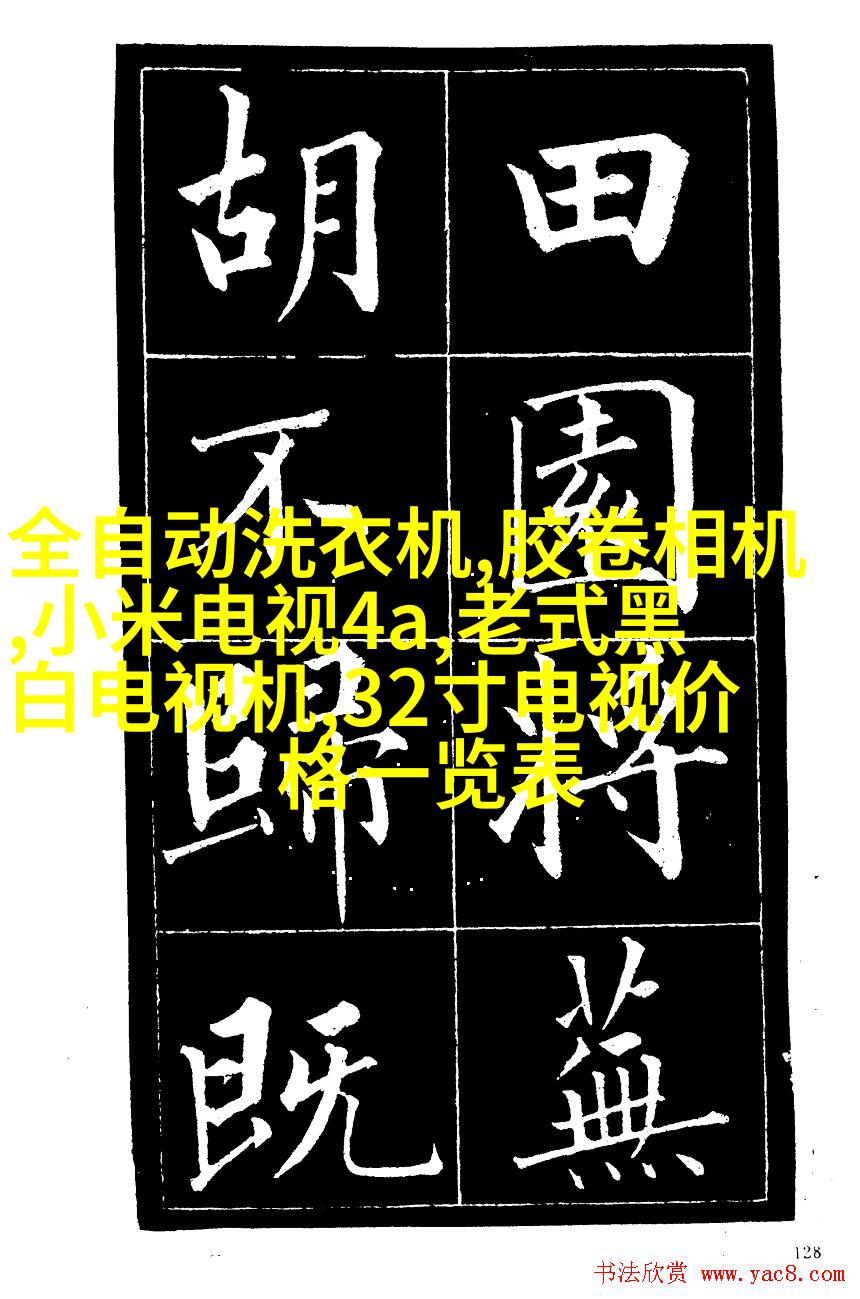 田園將蕪
胡不歸既
全自动洗衣机,胶卷相机
,小米电视4a,老式黑
白电视机,32寸电视价
格一览表
128
书法欣赏 www.yac8.com